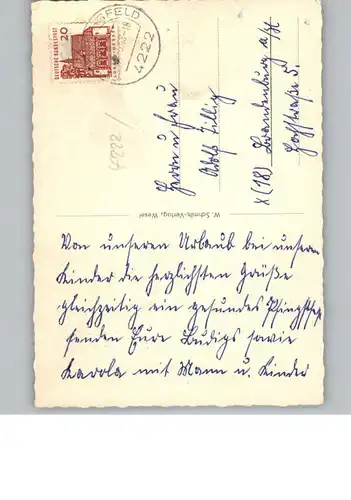 DEUTSCHE BUNDESPOST
20
SFELD
4222
4222 /
Herrn u Frau
Adolf Zillig
x (18) Brandenburg a/H
Hochstraße 5.
W. Schmitz-Verlag, Wesel
Von unseren Urlaub bei unseren
Kinder die herzlichsten Grüße
gleichzeitig ein gesundes Pfingstfest
senden Eure Ludigs sowie
Karola mit Mann u. Kinder